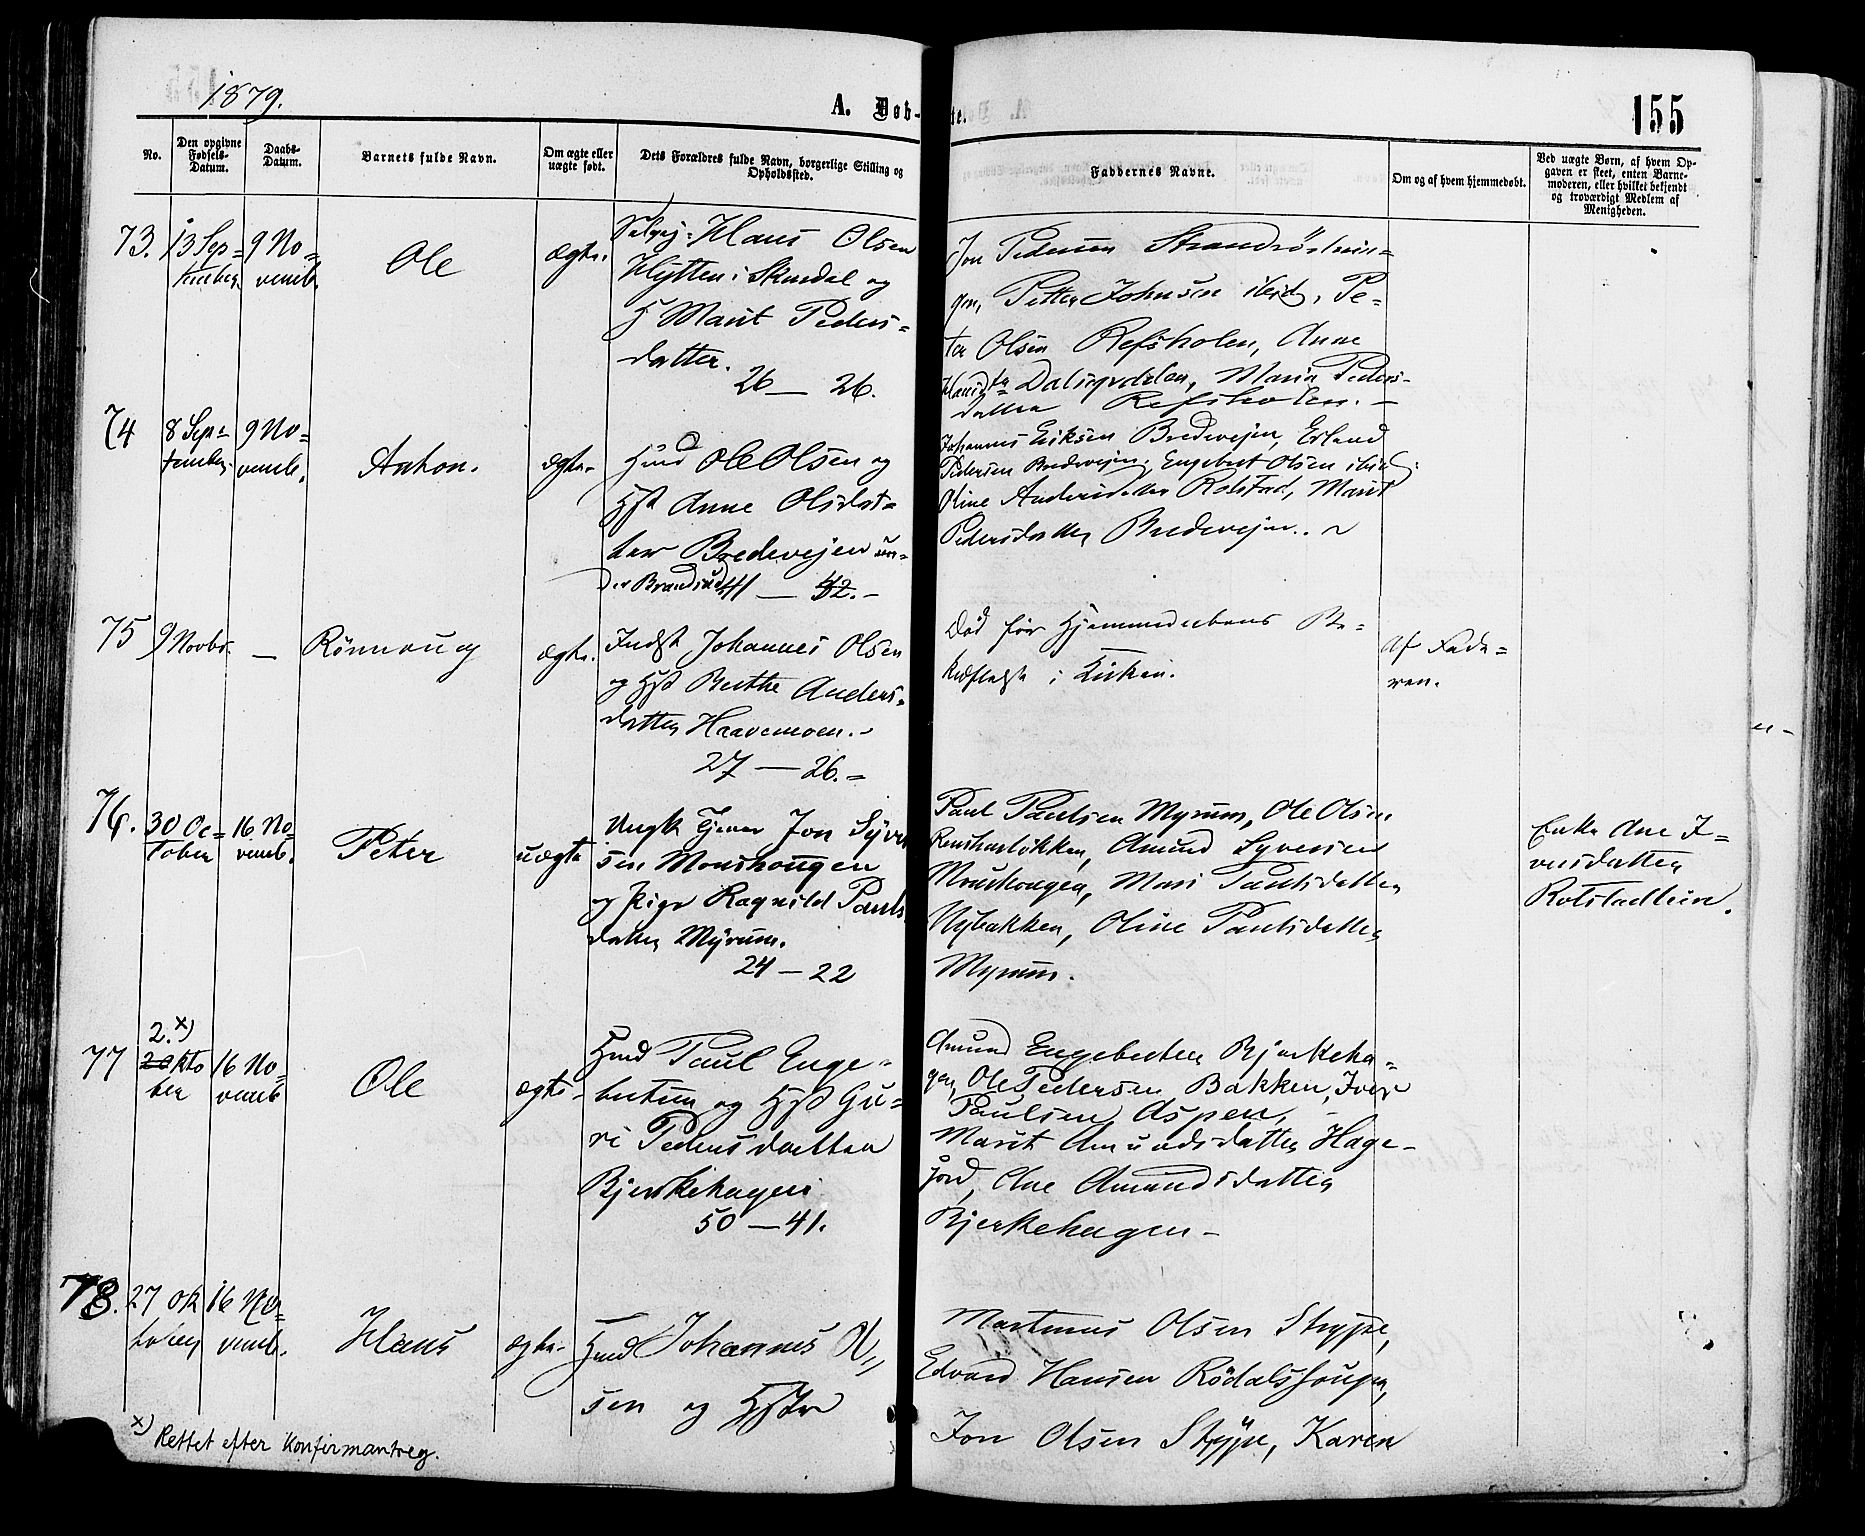 1879.
A. Døb-
te.
155
No.
Den opgivne Fødsels-Datum.
Daabs-Datum.
Barnets fulde Navn.
Om ægte eller uægte født.
Dets Forældres fulde Navn, borgerlige Stilling og Opholdssted.
Faddernes Navne.
Om og af hvem hjemmedøbt.
Ved uægte Børn, af hvem Opgaven er skeet, enten Barnemoderen, eller hvilket bekjendt og troværdigt Medlem af Menigheden.
73. 13 Sep-
tember
9 No-
vemb.
Ole
ægte.
Selvej. Hans Olsen
Hytten i Skurdal og
H Marit Peders-
datter.
26 — 26.
Jon Pedersen
gen, Petter Johnsen ibid, Pe-
ter Olsen Refsholen, Anne
Maria Peders-
datter Refsholen. —
74
8 Sep-
tember.
9 No-
vemb.
Anton.
ægte-
Husd Ole Olsen og
Hst Anne Olsdat-
ter Bredevejen un-
der Brandstad
41 — 42. -
Johannes Eriksen Bredevejen, Erland
Pedersen Bredevejen, Engebret Olsen ibid.
Oline Andersdatter Rolstad, Marit
Pedersdatter Bredevejen.
75
9 Novbr.
—
Rönnoug
ægte.
Indst Johannes Olsen
og Hst Berthe Anders-
datter Haavemoen. -
27 — 26. -
Död før Hjemmedaabens Be-
kræftelse i Kirken.
Af Fade-
ren.
76.
30 Oc-
tober
16 No-
vemb.
Peter
uægte
Ungk Tjener Jon Syver
sen Monshougen
og Pige Ragnild Pauls
datter Myrum.
24 — 22
Paul Paulsen Myrum, Ole Olsen
Amund Syversen
Monshougen, Mari Paulsdatter
Nybakken, Oline Paulsdatter
Myrum.
Enke Ane I-
versdatter
Rolstadlien.
77
2. x)
20 kto
ber
16 No-
vemb
Ole
ægte-
Husd Paul Enge-
bretsen og Hst Gu-
ri Pedersdatter
Bjerkehagen
50 — 41.
Amund Engebretsen Bjerkeha-
gen, Ole Pedersen Bakken, Iver
Paulsen Aspen,
Marit Amundsdatter Hage-
jord, Ane Amundsdatter
Bjerkehagen -
78.
27 Ok
tober
16 No-
vemb.
Hans
ægte-
Husd Johannes Ol-
sen og Hstr
Martinus Olsen Strype,
Edvard Hansen
Jon Olsen Strype, Karen
x) Rettet efter Konfirmantreg.